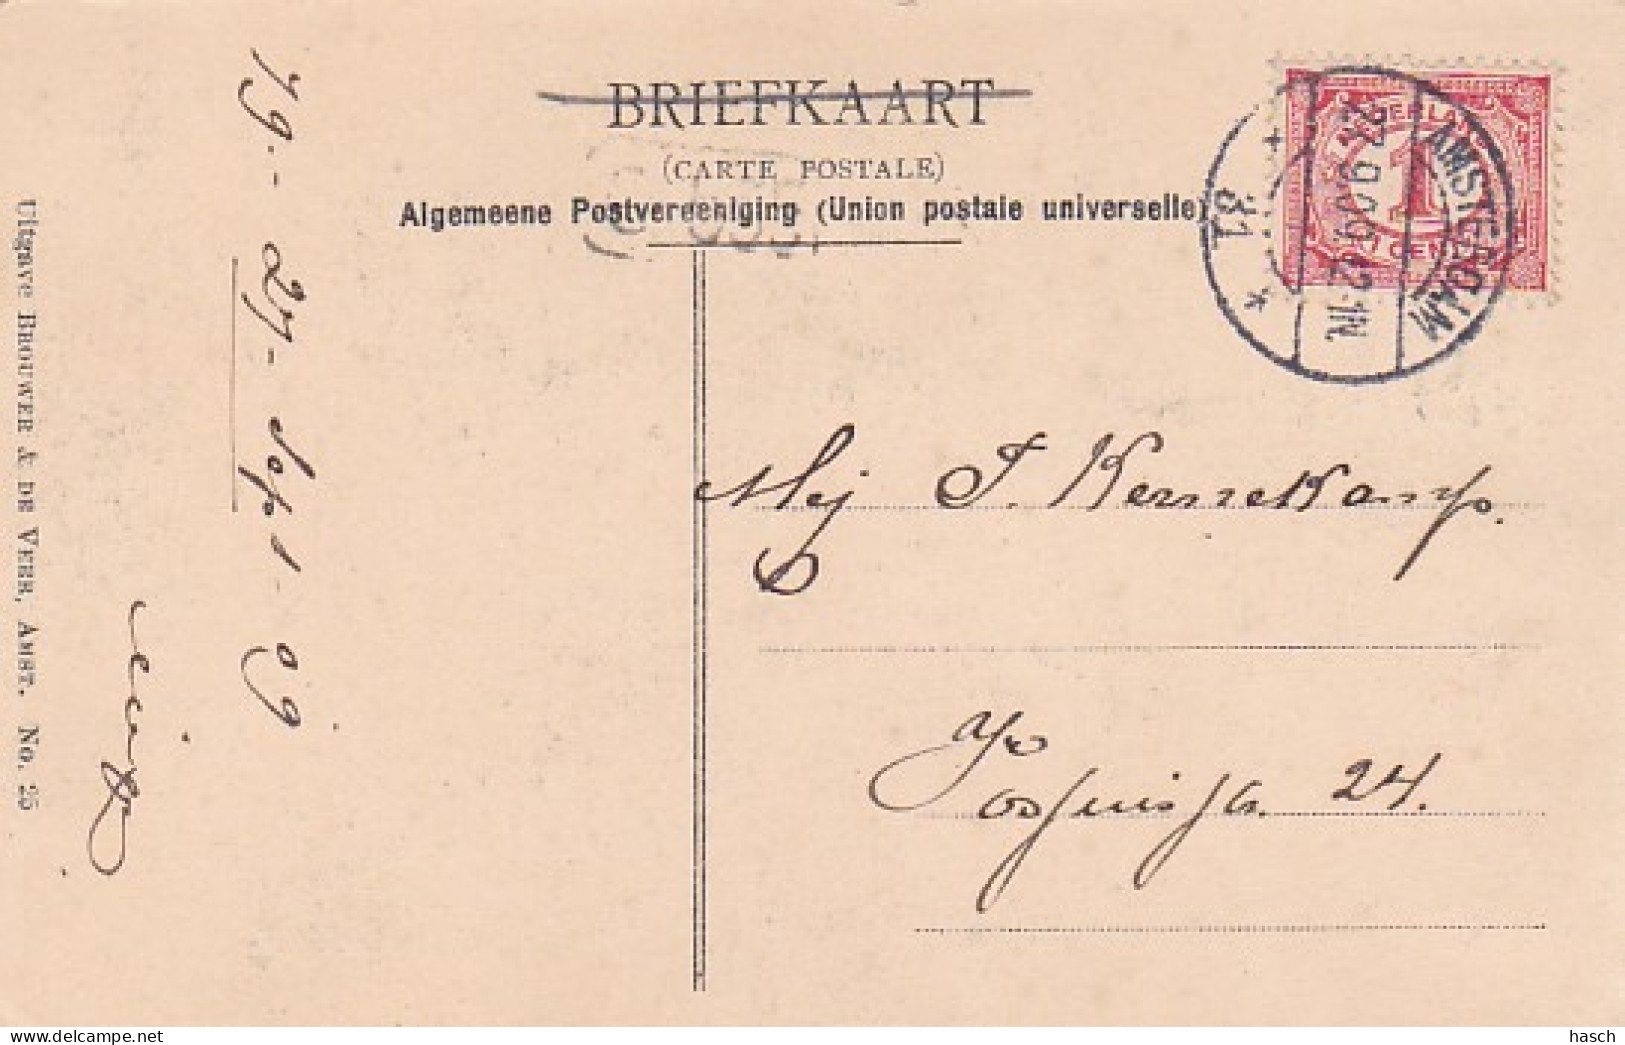 BRIEFKAART
(CARTE POSTALE)
Algemeene Postvereeniging (Union postale universelle)
NEDERLAND
1
1 CENT
AMSTERDAM
27.9.09.12-1N.
31
Mej J. Kernekamp.
24.
19 - 27 - Sept - 09
Uitgave BROUWER & DE VEER, AMST. No. 25
hasch